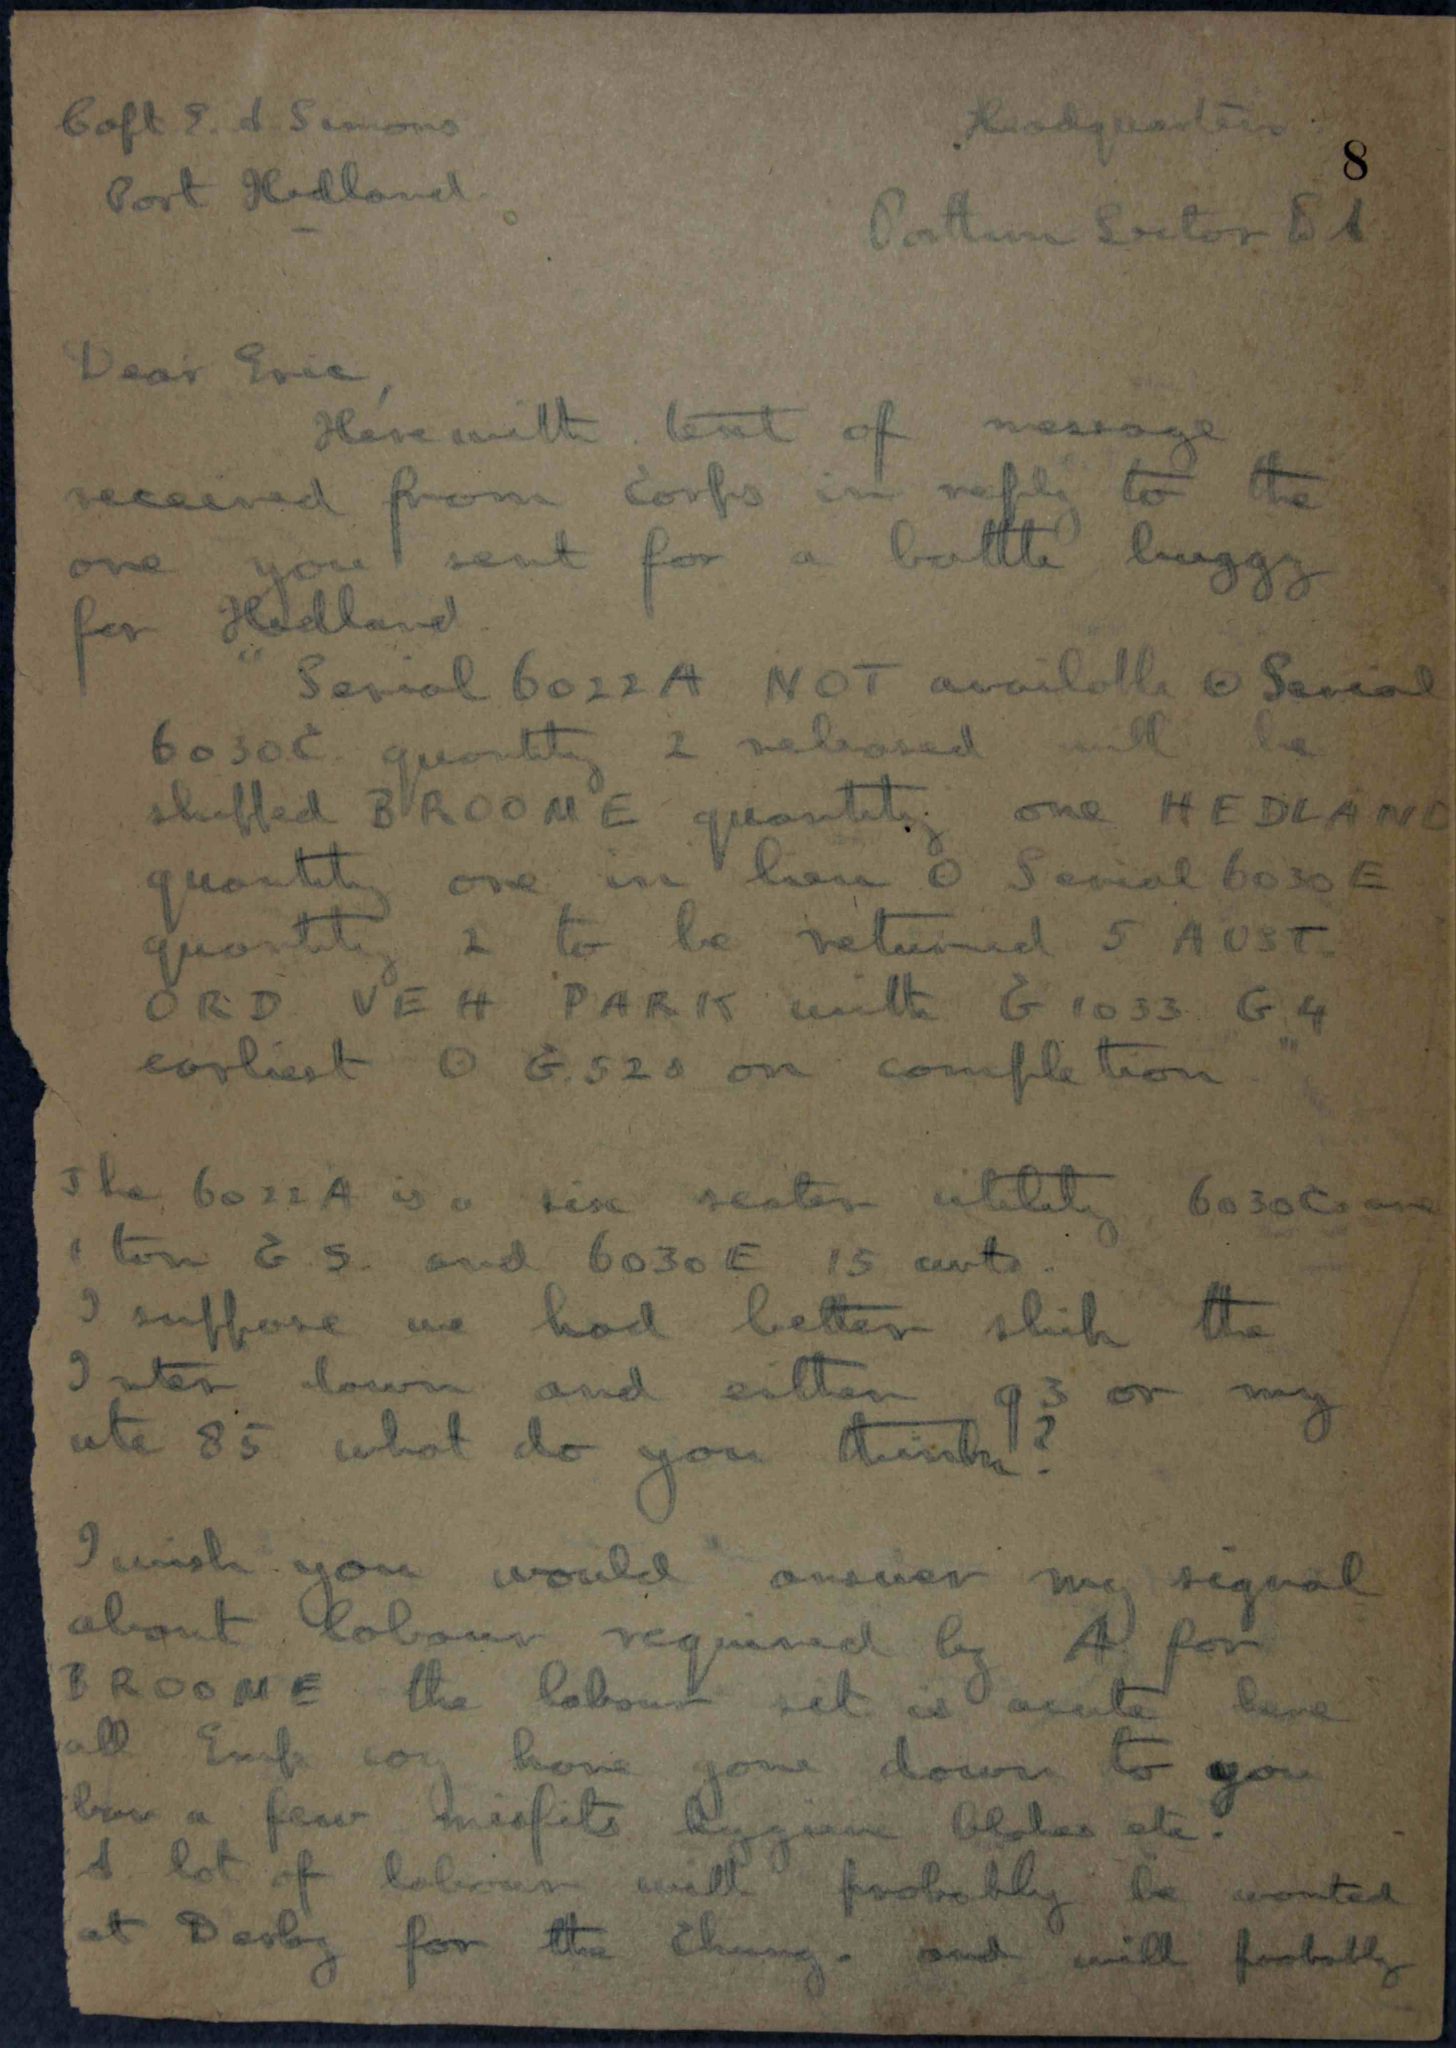 Capt E. A. Simons
Headquarters.
8
Port Hedland
Northern Sector B A
Dear Eric,
Herewith text of message
received from Corps in reply to the
one you sent for a battle buggy
for Hedland.
"Serial 6022A NOT available ⊙ Serial
6030C quantity 2 released will be
shipped BROOME quantity one HEDLAND
quantity one in lieu ⊙ Serial 6030E
quantity 2 to be returned 5 AUST.
ORD VEH PARK with G 1033 G 4
earliest ⊙ G.528 on completion "
The 6022A is a six seater utility 6030Cs are
1 ton G S. and 6030E 15 cwts.
I suppose we had better stick the
Inter down and either 93 or my
ute 85 what do you think?
I wish you would answer my signal
about labour required by A for
BROOME the labour sit is acute here
all Emp coy have gone down to you
bar a few misfits hygiene blokes etc.
A lot of labour will probably be wanted
at Derby for the and will probably